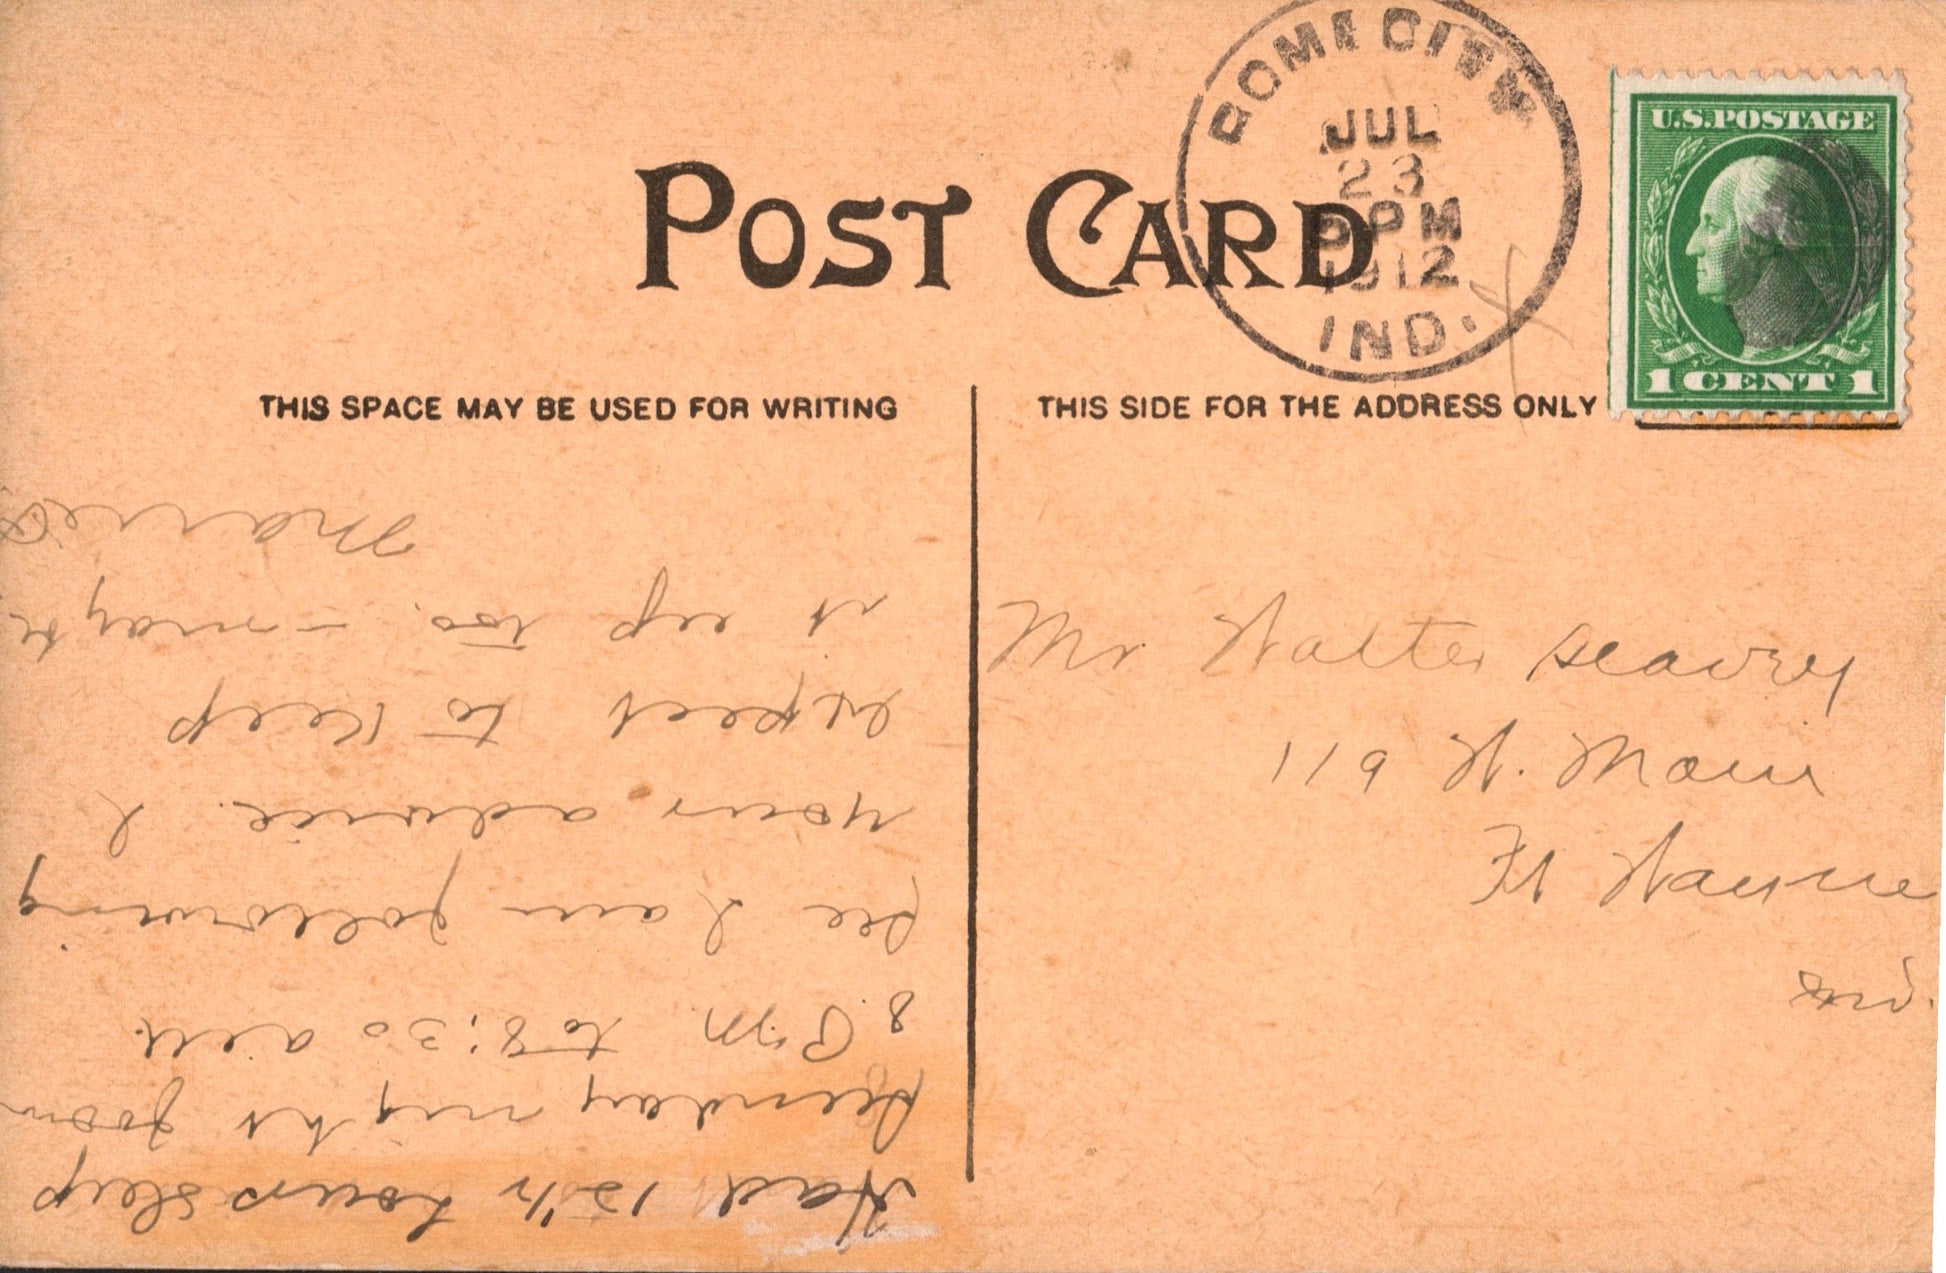 POST CARD
ROME CITY
JUL
23
PM
1912
IND.
U.S. POSTAGE
1 CENT 1
THIS SPACE MAY BE USED FOR WRITING
THIS SIDE FOR THE ADDRESS ONLY
Had 12½ hours sleep
Sunday night from
8. P.M. to 8:30 a.m.
See I am following
your advice. I
expect to keep
it up too. - maybe
Mr Walter Seavey
119 W. Main
Ft Wayne
Ind.